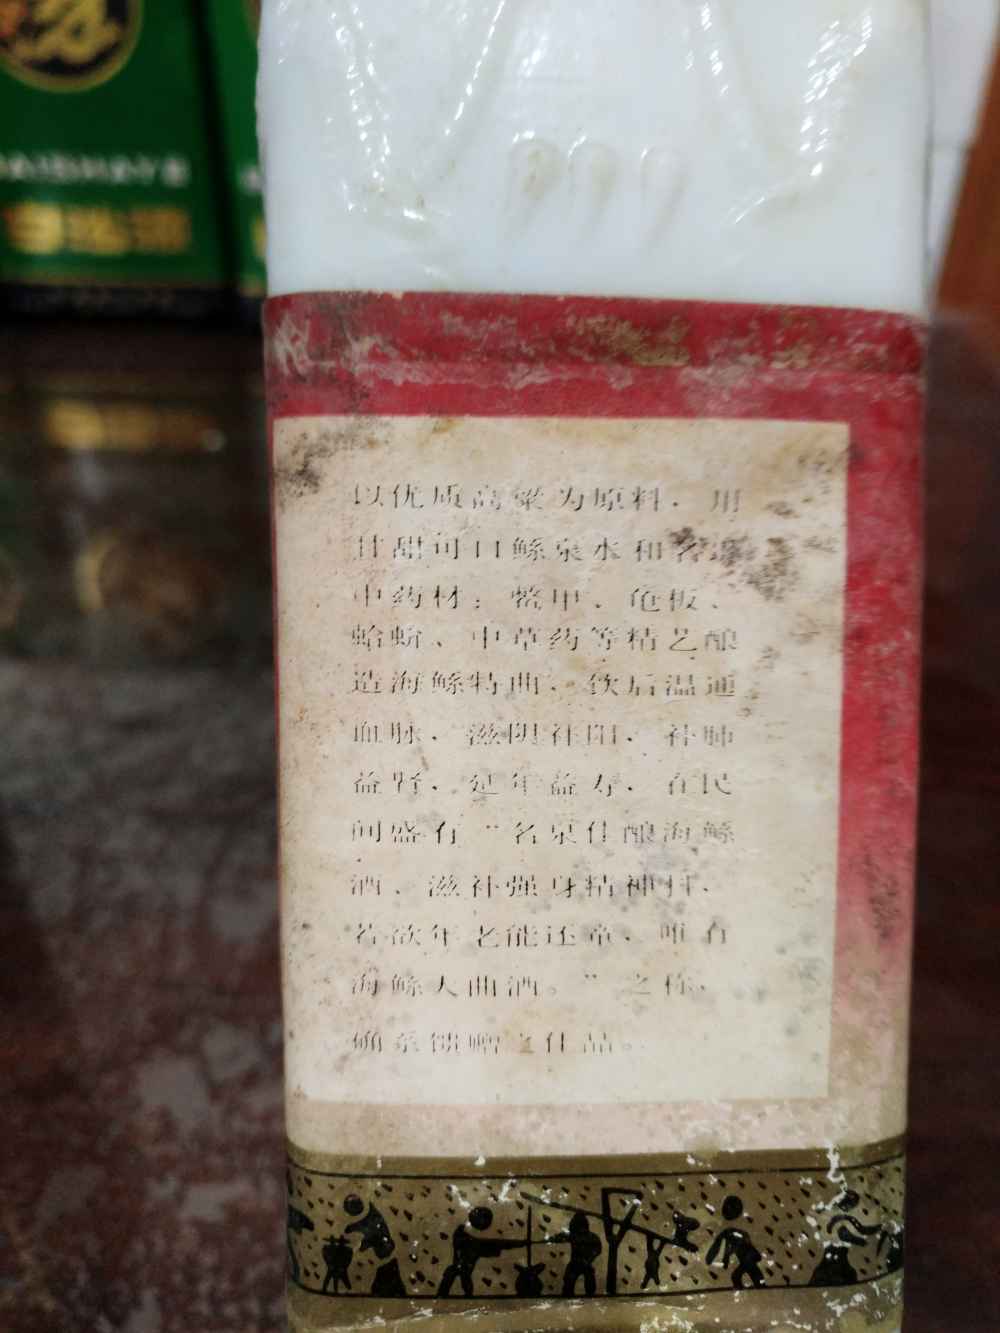 以优质高粱为原料，用
甘甜可口鲧泉水和名
中药材：鳖甲、龟板、
蛤蚧、中草药等精艺酿
造海鲧特曲，饮后温通
血脉，滋阴补阳，补肺
益肾，延年益寿，在民
间盛有“名泉佳酿海鲧
酒，滋补强身精神抖，
若欲年老能还童，唯有
海鲧大曲酒。”之称，
确系馈赠之佳品。